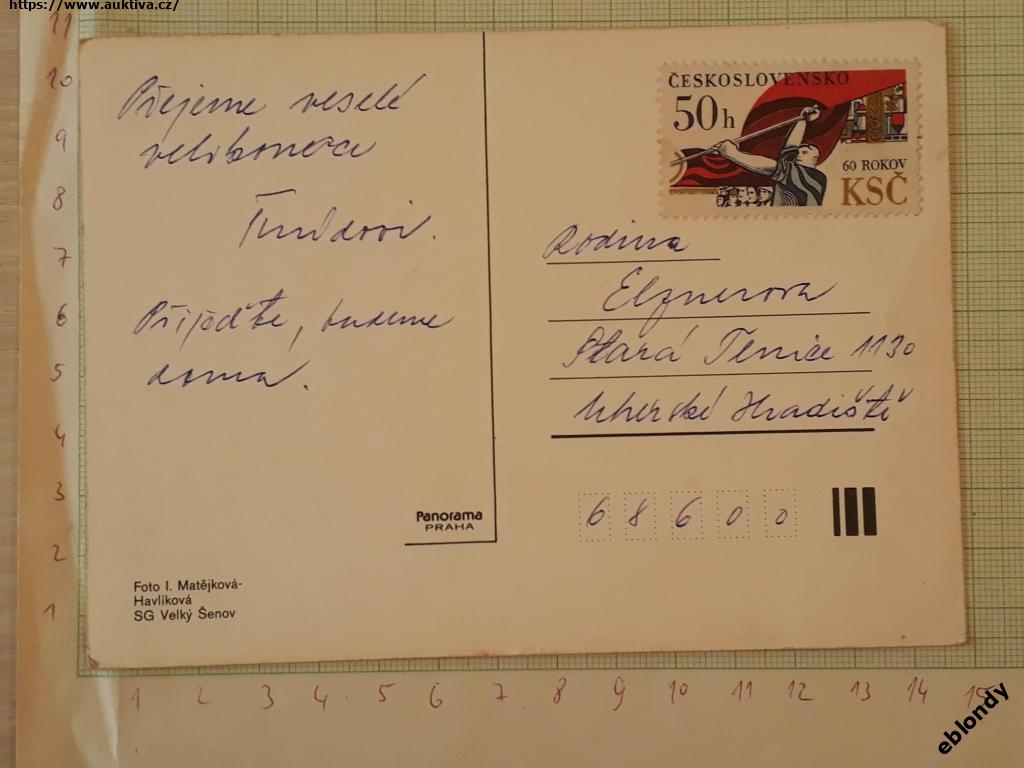 https://www.auktiva.cz/
Přejeme veselé
velikonoce
Přijeďte, budeme
doma.
Panorama
PRAHA
Foto I. Matějková-
Havlíková
SG Velký Šenov
ČESKOSLOVENSKO
50h
60 ROKOV
KSČ
Rodina
Elznerova
Stará Tenice 1130
Uherské Hradiště
6 8 6 0 0
11
10
9
8
7
6
5
4
3
2
1
1 2 3 4 5 6 7 8 9 10 11 12 13 14 15
eblondy